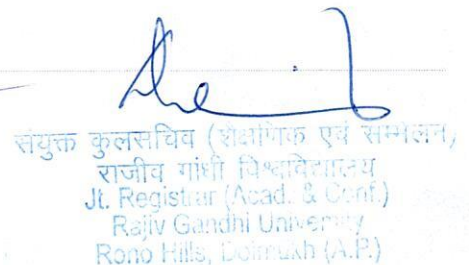 संयुक्त कुलसचिव (शैक्षणिक एवं सम्मेलन)
राजीव गांधी विश्वविद्यालय
Jt. Registrar (Acad. & Conf.)
Rajiv Gandhi University
Rono Hills, Doimukh (A.P.)